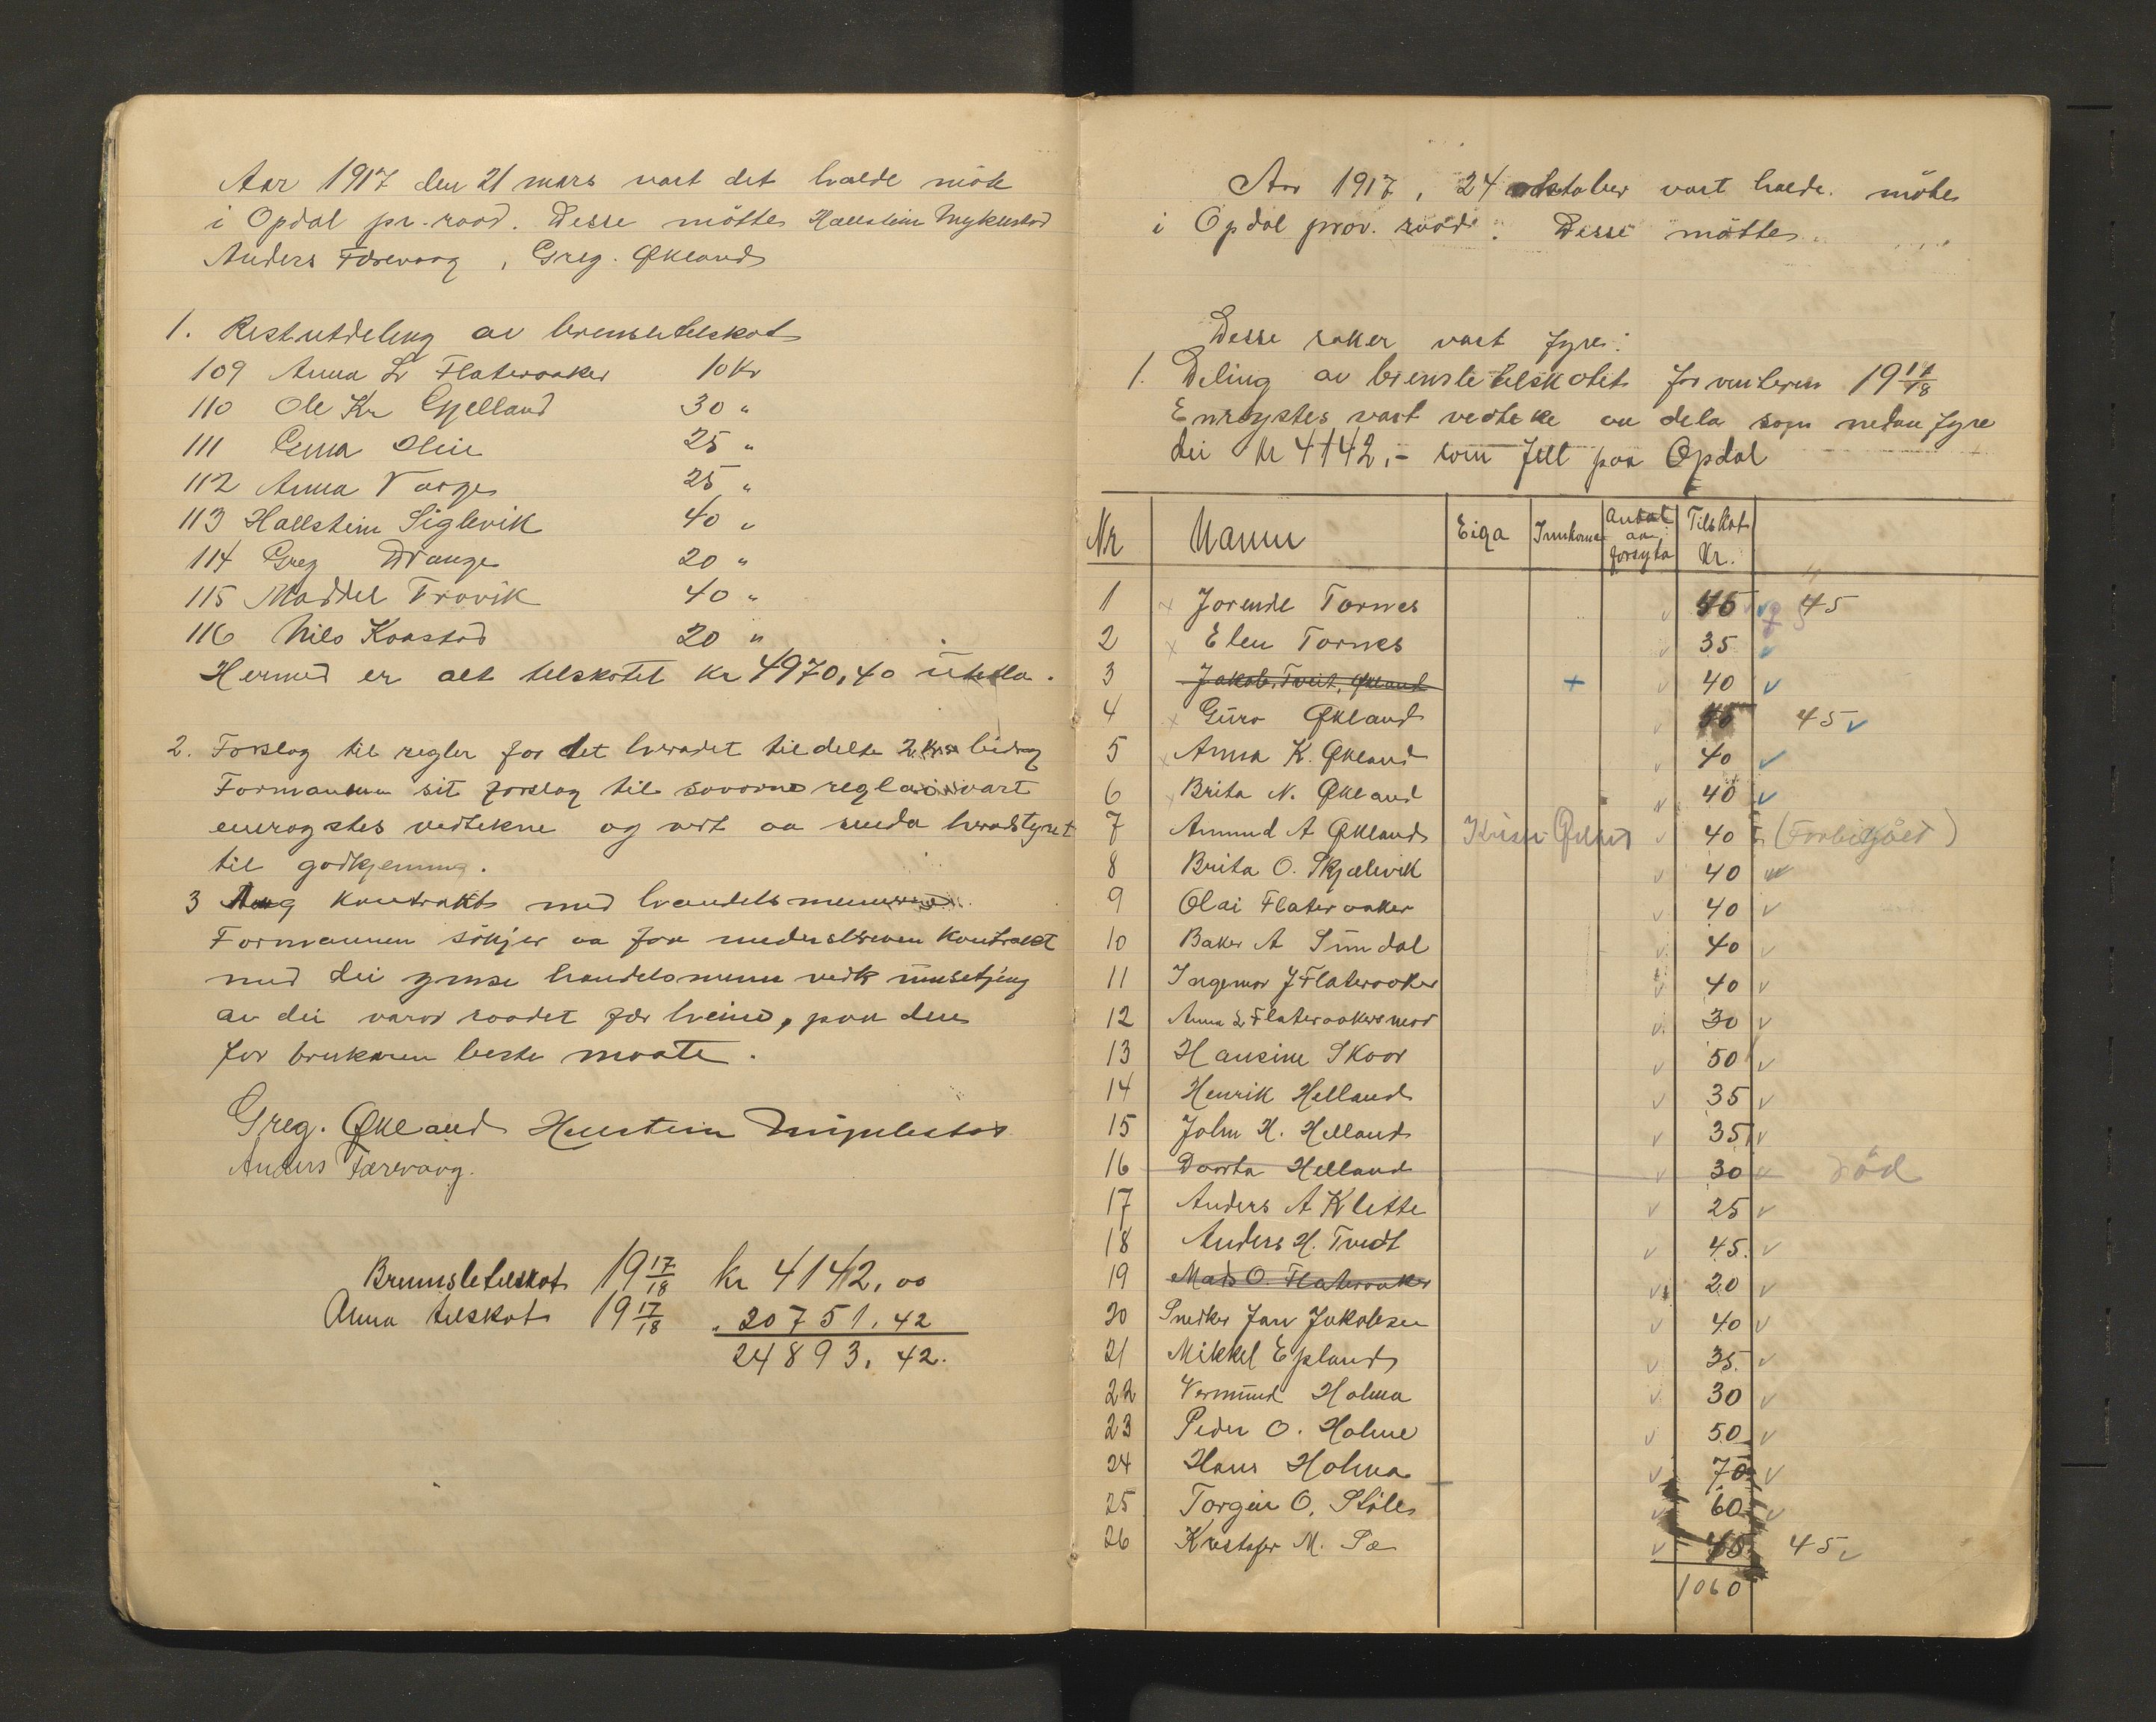 Aar 1917 den 21 mars vart det halde möte
i Opdal pr. raad. Desse møtte Hallstein Myklestad
Anders Færevaag, Greg. Økland
1. Restutdeling av brensletelskot
109 Anna L. Flateraaker 10 Kr
110 Ole Kr Gjelland 30 "
111 Olsen 25 "
112 Anna Varge 25 "
113 Hallstein Siglevik 40 "
114 Greg Drange 20 "
115 Maddel Trovik 40 "
116 Nils Kaastad 20 "
Hermed er alt telskotet kr 4970,40 utdela.
2. Forslag til reglar for det heradet tildelte 2 Kr bidrag
Formannen sit forslag til reglar vart
einrøystes vedtekne og vert aa senda heradstyret
til godkjenning.
3 Ang kontrakt med handelsmennene
Formannen søkjer aa faa underskreven kontrakt
med dei ymse handelsmenn vedk umsetjing
av dei varor raadet fær heim, paa den
for brukaren beste maate.
Greg. Økland Hallstein Myklestad
Anders Færevaag.
Brennsletelskot 19 17/18 kr 4142,00
Anna telskot 19 17/18 " 20751,42
24893,42.
Aar 1917, 24 oktober vart halde møte
i Opdal prov. raad. Desse møtte
Desse saker vart fyre:
1. Deling av brensletelskotet for vinteren 19 17/18
Einrøystes vart vedteke aa dela som nedanfyre
dei kr 4142,- som fell paa Opdal
Nr Namn Eiga Innkoma Antal aa forsyta Tilskot Kr.
1 × Jorende Tornes v 45 v 45
2 × Elen Tornes v 35 v
3 Jakob Tveit, Økland + v 40 v
4 × Guro Økland v 45 v
5 × Anna K. Økland v 40 v
6 × Brita N. Økland v 40 v
7 Amund A Økland Økland v 40 (Forbigået)
8 Brita O. Skjelevik v 40 v
9 Olai Flateraaker v 40 v
10 Baker A Sundal v 40 v
11 Ingemar J Flateraaker v 40 v
12 Anna L Flateraakersneset v 30 v
13 Hansine Skaar v 50 v
14 Henrik Helland v 35 v
15 John H. Helland v 35 v
16 Daarta Helland v 30 v död
17 Anders A Klette v 25 v
18 Anders H. Tvedt v 45 v
19 Mads O. Flateraaker v 20 v
20 Snedker Jan Jakobsen v 40 v
21 Mikkel Epland v 35 v
22 Vermund Holma v 30 v
23 Peder O. Holme v 50 v
24 Hans Holma v 70 v
25 Torgeir O. Støle v 60 v
26 Kristofer M. Sæ v 45 45 v
1060